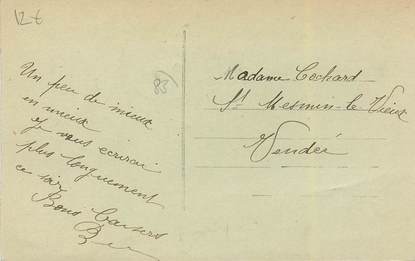 12 €
85
Un peu de mieux
en mieux
Je vous écrirai
plus longuement
ce soir
Bons Baisers
Madame Cechard
St Mesmin-le Vieux
Vendée